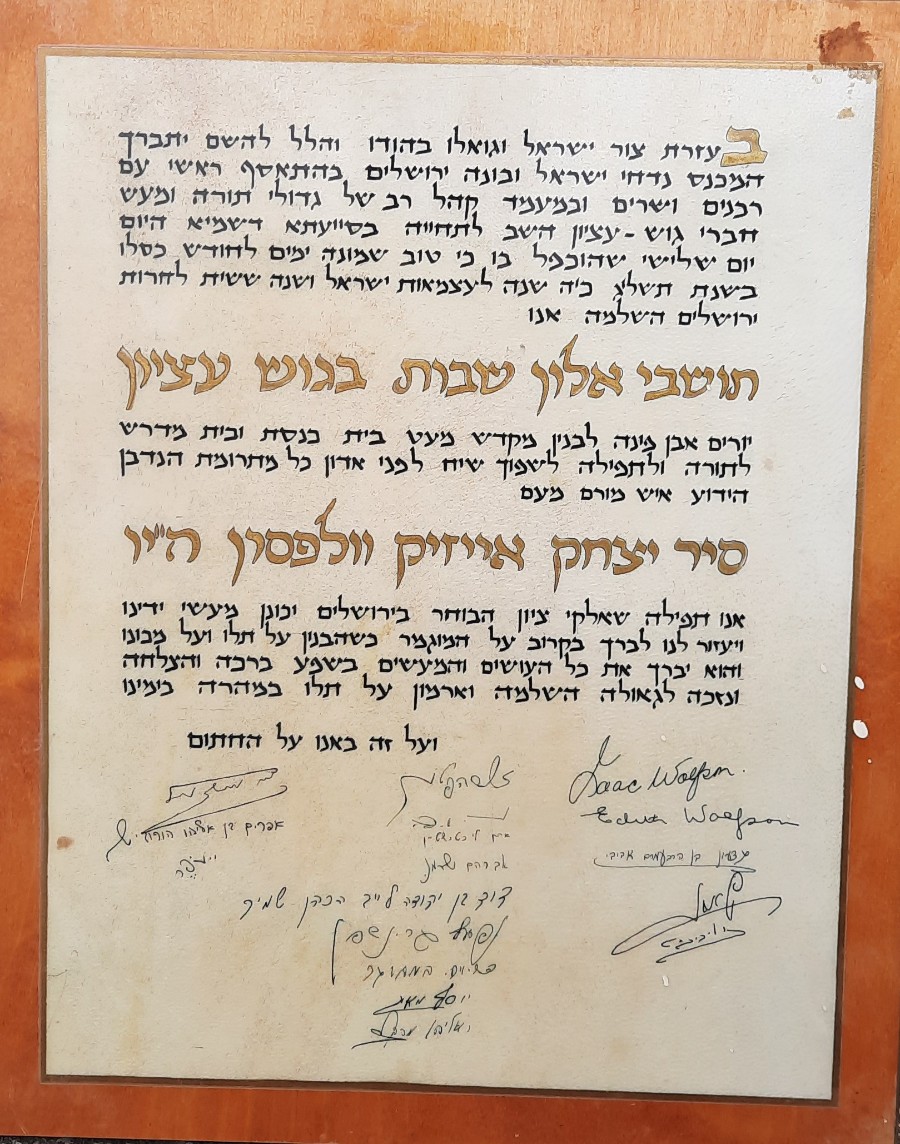 בעזרת צור ישראל וגואלו בהודו והלל להשם יתברך
המכנס נדחי ישראל ובונה ירושלים בהתאסף ראשי עם
רבנים ושרים ובמעמד קהל רב של גדולי תורה ומעש
חברי גוש - עציון השב לתחייה בסייעתא דשמיא היום
יום שלישי שהוכפל בו כי טוב שמונה ימים לחודש כסלו
בשנת תשל״ג כ״ה שנה לעצמאות ישראל ושנה ששית לחרות
ירושלים השלמה אנו
תושבי אלון שבות בגוש עציון
יורים אבן פינה לבנין מקדש מעט בית כנסת ובית מדרש
לתורה ולתפילה לשפוך שיח לפני אדון כל מתרומת הנדבן
הידוע איש מורם מעם
סיר יצחק אייזיק וולפסון הי״ו
אנו תפילה שאלקי ציון הבוחר בירושלים יכונן מעשי ידינו
ויעזור לנו לברך בקרוב על המוגמר כשהבנין על תלו ועל מכונו
והוא יברך את כל העושים והמעשים בשפע ברכה והצלחה
ונזכה לגאולה השלמה וארמון על תלו במהרה בימינו
ועל זה באנו על החתום
Isaac Wolfson.
Edith Wolfson
אפרים בן
אברהם
דוד בן יהודה לייב הכהן שמיר
יוסף